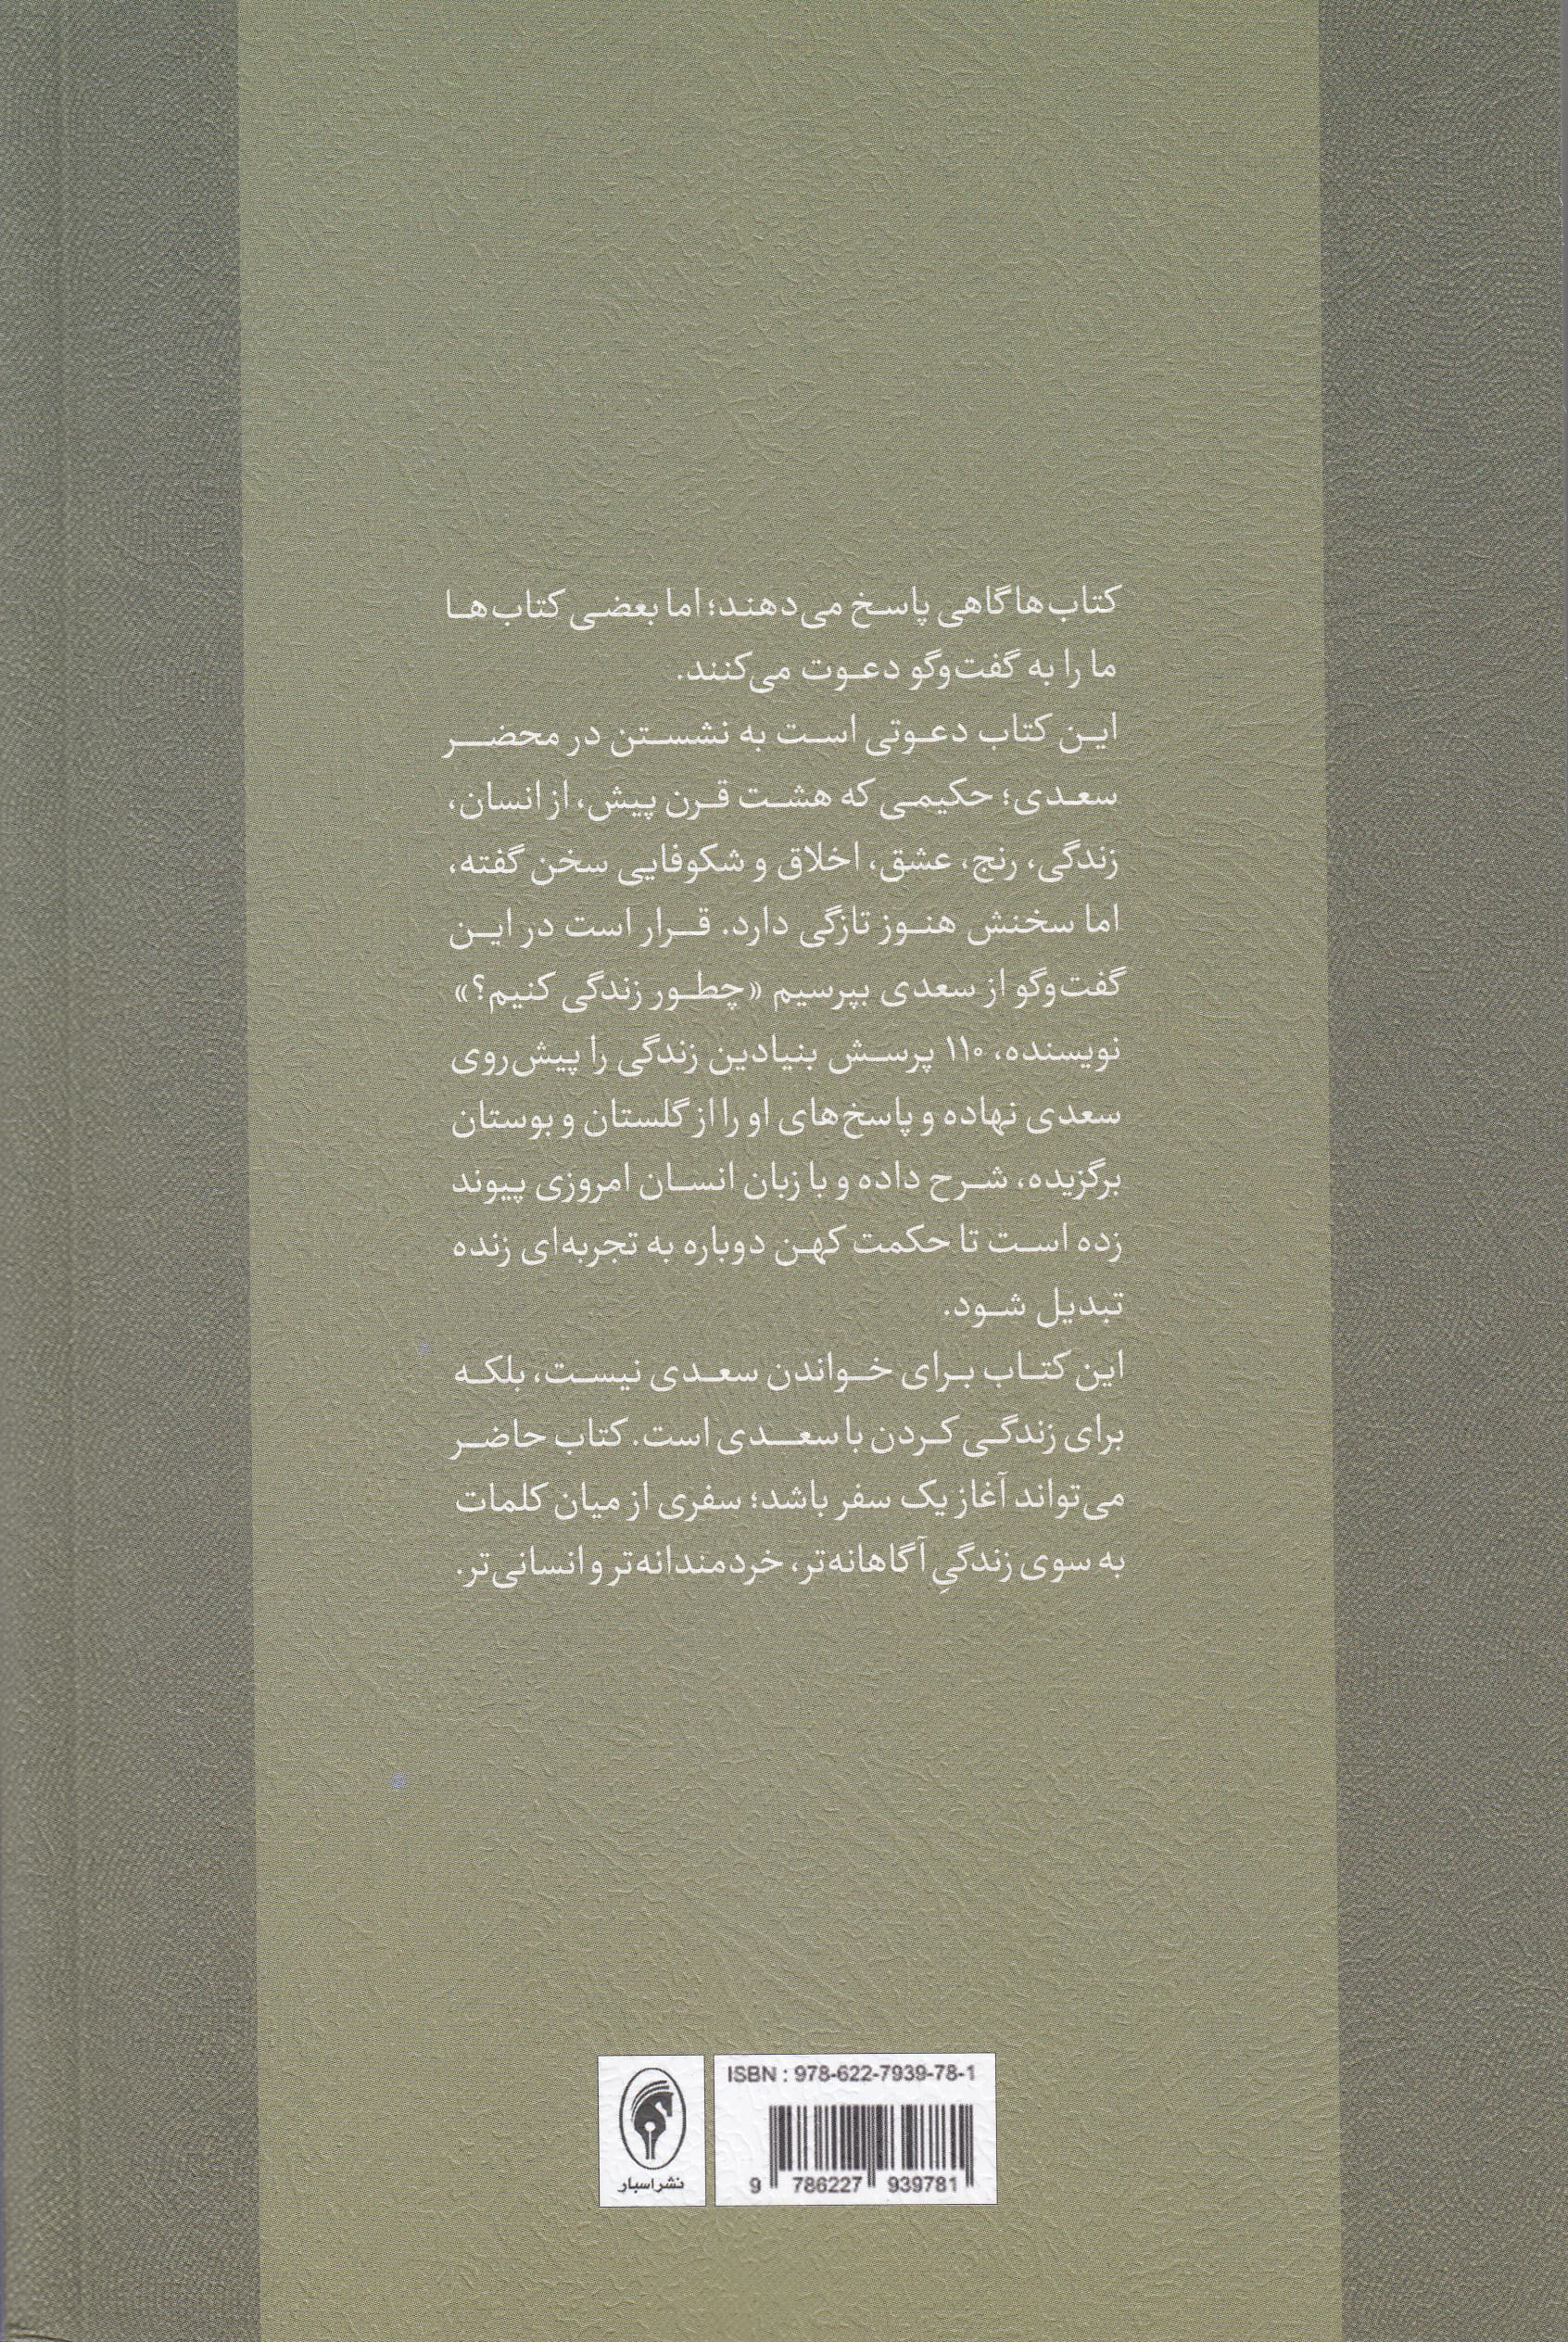 کتاب‌ها گاهی پاسخ می‌دهند؛ اما بعضی کتاب‌ها
ما را به گفت‌وگو دعوت می‌کنند.
این کتاب دعوتی است به نشستن در محضر
سعدی؛ حکیمی که هشت قرن پیش، از انسان،
زندگی، رنج، عشق، اخلاق و شکوفایی سخن گفته،
اما سخنش هنوز تازگی دارد. قرار است در این
گفت‌وگو از سعدی بپرسیم «چطور زندگی کنیم؟»
نویسنده، ۱۱۰ پرسش بنیادین زندگی را پیش‌روی
سعدی نهاده و پاسخ‌های او را از گلستان و بوستان
برگزیده، شرح داده و با زبان انسان امروزی پیوند
زده است تا حکمت کهن دوباره به تجربه‌ای زنده
تبدیل شود.
این کتاب برای خواندن سعدی نیست، بلکه
برای زندگی کردن با سعدی است. کتاب حاضر
می‌تواند آغاز یک سفر باشد؛ سفری از میان کلمات
به سوی زندگیِ آگاهانه‌تر، خردمندانه‌تر و انسانی‌تر.
ISBN : 978-622-7939-78-1
9 786227 939781
نشر اسبار